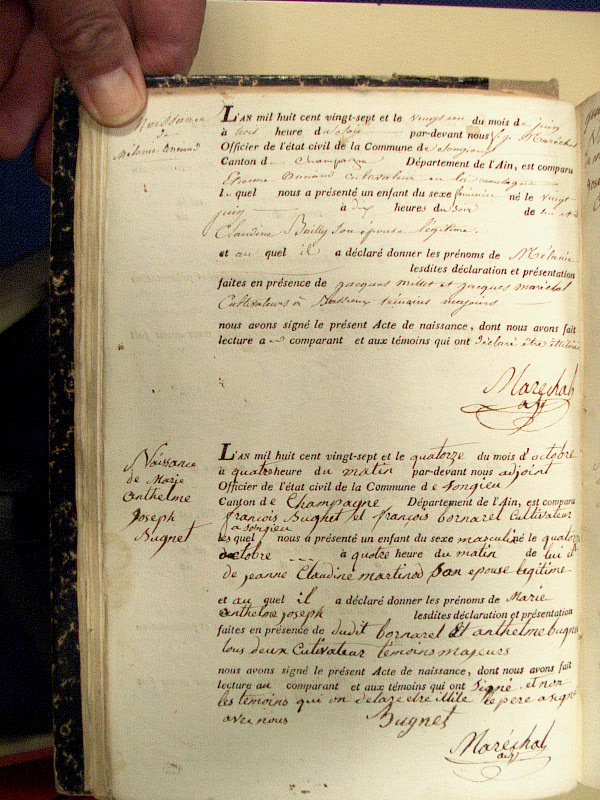 Naissance
de
Mélanie
L'AN mil huit cent vingt-sept et le vingt un du mois de juin
à trois heure du soir par-devant nous Maréchal
Officier de l'état civil de la Commune de Songieu
Canton de Champagne Département de l'Ain, est comparu
Etienne cultivateur en la montagne
le quel nous a présenté un enfant du sexe féminin né le vingt
juin à dix heures du soir de lui et d
Claudine Bailly son épouse légitime.
et au quel il a déclaré donner les prénoms de Mélanie
lesdites déclaration et présentation
faites en présence de jacques millet et jacques maréchal
Cultivateurs à témoins majeurs
nous avons signé le présent Acte de naissance, dont nous avons fait
lecture a comparant et aux témoins qui ont déclaré être illitérés
Maréchal
adjt
Naissance
de Marie
anthelme
Joseph
Bugnet
L'AN mil huit cent vingt-sept et le quatorze du mois d'octobre
à quatre heure du matin par-devant nous adjoint
Officier de l'état civil de la Commune de Songieu
Canton de Champagne Département de l'Ain, est comparu
françois Bugnet françois bornarel Cultivateur
a Songieu
lesquel nous a présenté un enfant du sexe masculin né le quatorze
octobre à quatre heure du matin de lui et
de jeanne Claudine martinod Son epouse legitime
et au quel il a déclaré donner les prénoms de Marie
anthelme joseph lesdites déclaration et présentation
faites en présence de dudit bornarel Et anthelme bugnet
tous deux Cutivateur temoins majeurs
nous avons signé le présent Acte de naissance, dont nous avons fait
lecture au comparant et aux témoins qui ont Signé et non
les temoins qui on delare etre illite le pere a signé
avec nous Bugnet
Maréchal
adjt